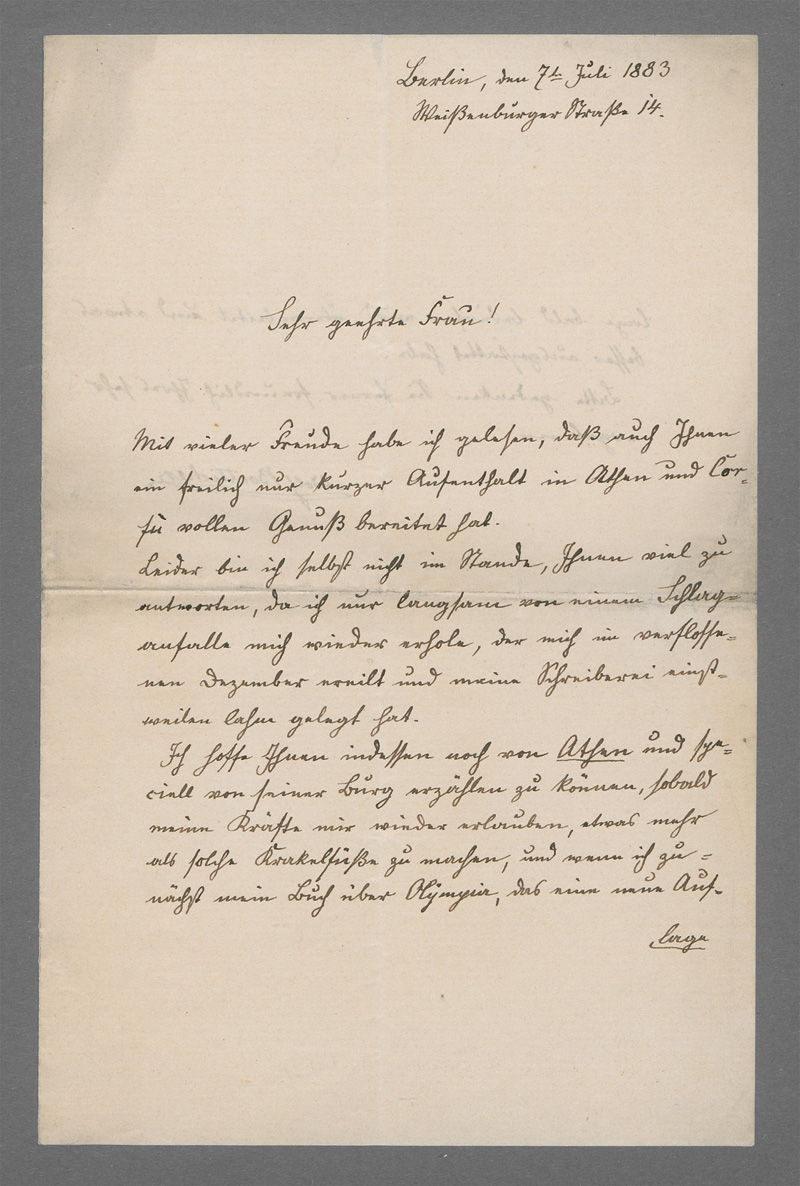 Berlin, den 7t. Juli 1883
Weißenburger Straße 14.
Sehr geehrte Frau!
Mit vieler Freude habe ich gelesen, daß auch Ihnen
ein freilich nur kurzer Aufenthalt in Athen und Cor-
fu vollen Genuß bereitet hat.
Leider bin ich selbst nicht im Stande, Ihnen viel zu
antworten, da ich nur langsam von einem Schlag=
anfalle mich wieder erhole, der mich im verflosse=
nen Dezember ereilt und meine Schreiberei einst=
weilen lahm gelegt hat.
Ich hoffe Ihnen indessen noch von Athen und spe=
ciell von seiner Burg erzählen zu können, sobald
meine Kräfte mir wieder erlauben, etwas mehr
als solche Krakelfüße zu machen, und wenn ich zu=
nächst mein Buch über Olympia, das eine neue Auf-
lage